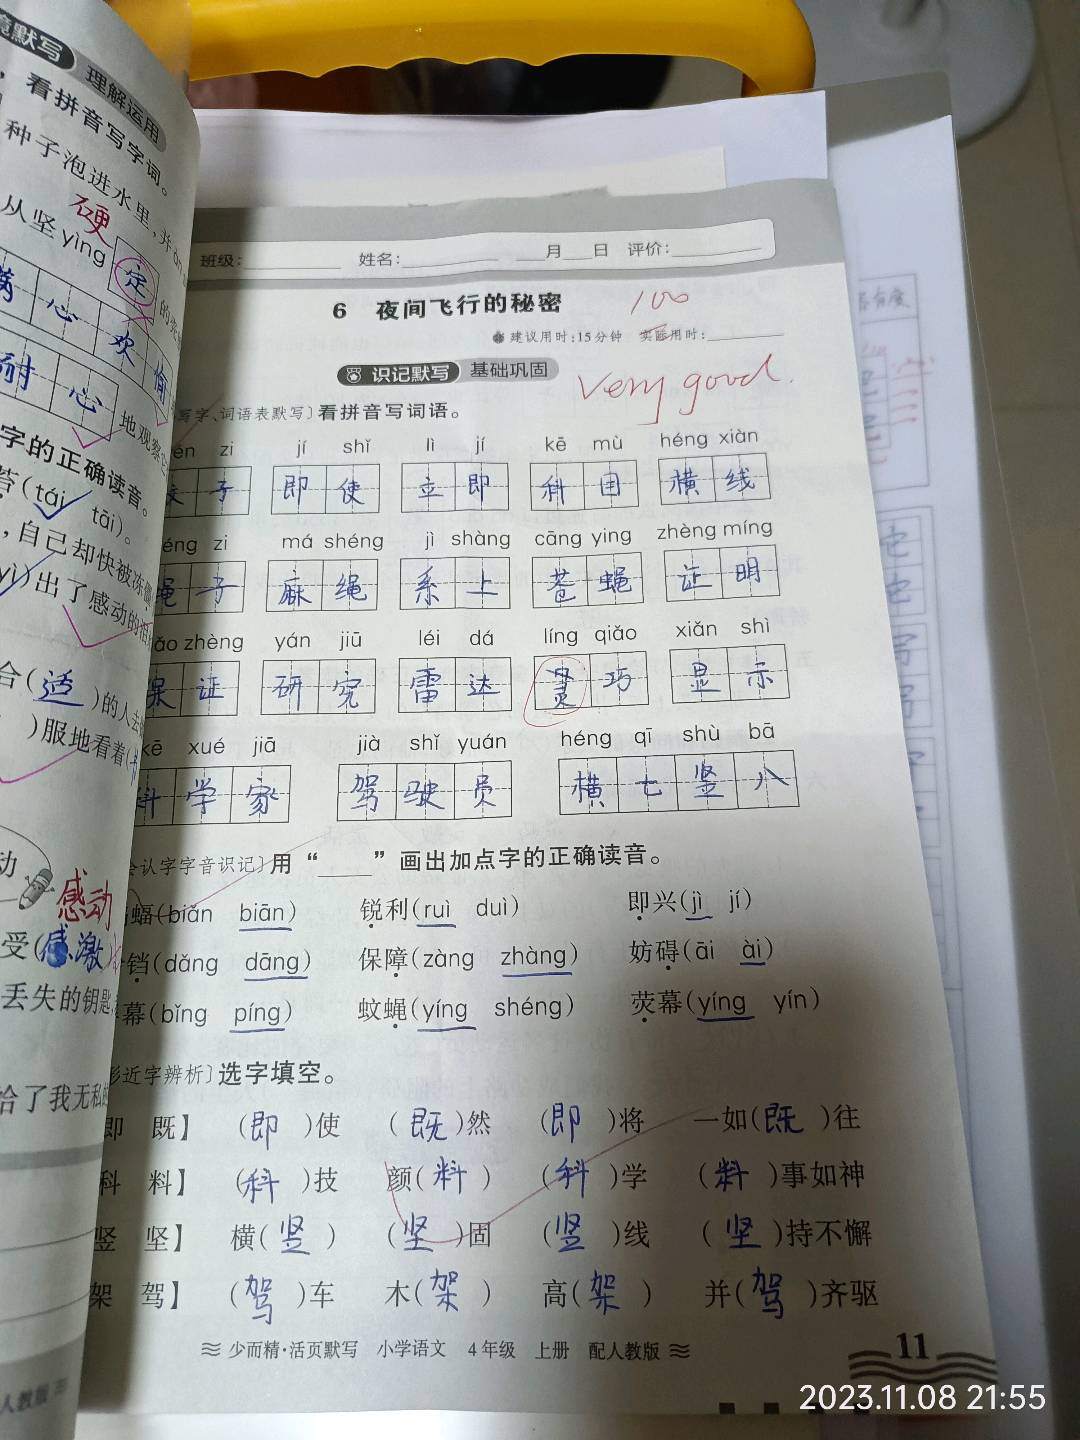 境默写 理解运用
看拼音写字词。
种子泡进水里,并
硬
从坚ying 定 的
满 心 欢 愉
耐 心 地观察
字的正确读音。
苔(tái tāi)。
,自己却快被冻僵
yì)出了感动的泪
合(适)的人去
)服地看着(
动
感动
受(感激)
丢失的钥匙
给了我无私的
人教版
班级: 姓名: 月 日 评价:
6 夜间飞行的秘密 100
建议用时:15分钟 实际用时:
识记默写 基础巩固 Very good.
写字、词语表默写〕看拼音写词语。
én zi jí shǐ lì jí kē mù héng xiàn
蚊 子 即 使 立 即 科 目 横 线
éng zi má shéng jì shàng cāng ying zhèng míng
绳 子 麻 绳 系 上 苍 蝇 证 明
ǎo zhèng yán jiū léi dá líng qiǎo xiǎn shì
保 证 研 究 雷 达 灵 巧 显 示
kē xué jiā jià shǐ yuán héng qī shù bā
科 学 家 驾 驶 员 横 七 竖 八
会认字字音识记〕用“____”画出加点字的正确读音。
蝠(biǎn biān) 锐利(ruì duì) 即兴(jì jí)
铛(dǎng dāng) 保障(zàng zhàng) 妨碍(āi ài)
幕(bǐng píng) 蚊蝇(yíng shéng) 荧幕(yíng yín)
形近字辨析〕选字填空。
即 既】 (即)使 (既)然 (即)将 一如(既)往
科 料】 (科)技 颜(料) (科)学 (料)事如神
竖 坚】 横(竖) (坚)固 (竖)线 (坚)持不懈
架 驾】 (驾)车 木(架) 高(架) 并(驾)齐驱
少而精·活页默写 小学语文 4年级 上册 配人教版
11
2023.11.08 21:55